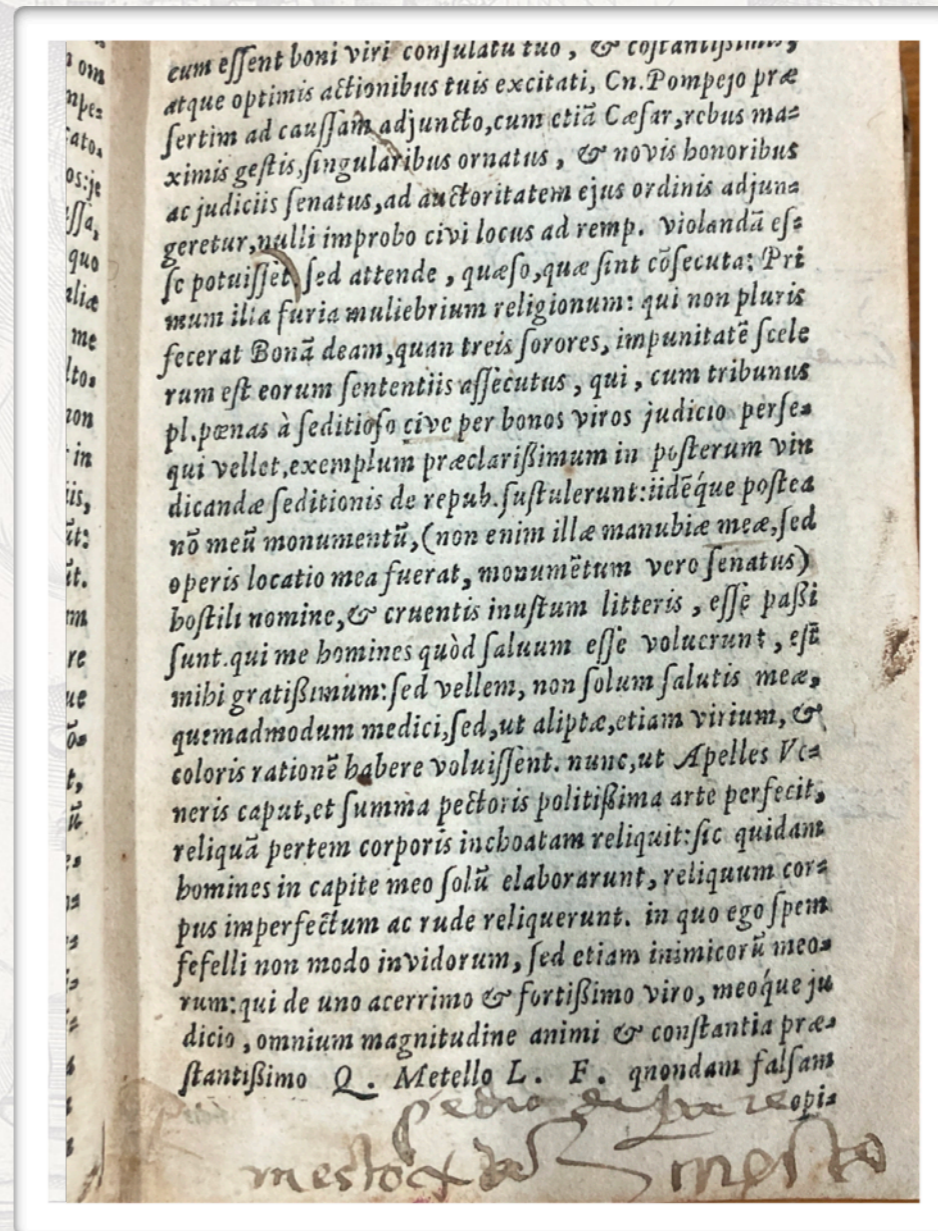 cum essent boni viri consulatu tuo, & costantissimis,
atque optimis actionibus tuis excitati, Cn. Pompejo præ
sertim ad caussam adjuncto, cum etiā Cæsar, rebus ma=
ximis gestis, singularibus ornatus, & novis honoribus
ac judiciis senatus, ad auctoritatem ejus ordinis adjun=
geretur, nulli improbo civi locus ad remp. violandā es=
se potuisset. sed attende, quæso, quæ sint cōsecuta: Pri
mum illa furia muliebrium religionum: qui non pluris
fecerat Bonā deam, quan treis sorores, impunitatē scele
rum est eorum sententiis assecutus, qui, cum tribunus
pl. pœnas à seditioso cive per bonos viros judicio perse=
qui vellet, exemplum præclarißimum in posterum vin
dicandæ seditionis de repub. sustulerunt: iidēque postea
nō meū monumentū, (non enim illæ manubiæ meæ, sed
operis locatio mea fuerat, monumētum vero senatus)
hostili nomine, & cruentis inustum litteris, esse paßi
sunt. qui me homines quòd saluum esse voluerunt, est
mihi gratißimum: sed vellem, non solum salutis meæ,
quemadmodum medici, sed, ut aliptæ, etiam virium, &
coloris rationē habere voluissent. nunc, ut Apelles Ve=
neris caput, et summa pectoris politißima arte perfecit,
reliquā pertem corporis inchoatam reliquit: sic quidam
homines in capite meo solū elaborarunt, reliquum cor=
pus imperfectum ac rude reliquerunt. in quo ego spem
fefelli non modo invidorum, sed etiam inimicorū meo=
rum: qui de uno acerrimo & fortißimo viro, meóque ju
dicio, omnium magnitudine animi & constantia præ=
stantißimo Q. Metello L. F. qnondam falsam
opi=
mesto